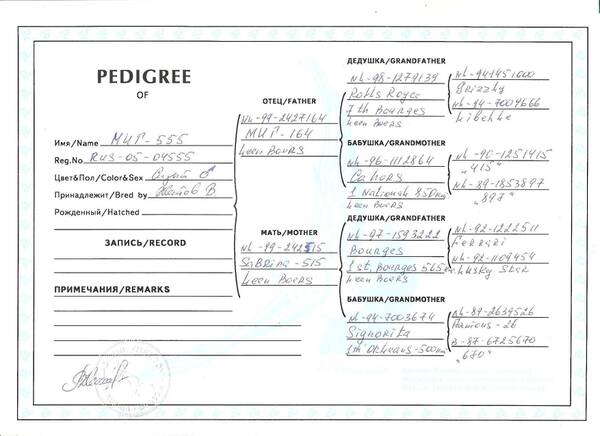 PEDIGREE
OF
Имя/Name МИГ-555
Reg.No RUS-05-04555
Цвет&Пол/Color&Sex ♂
Принадлежит/Bred by В.
Рожденный/Hatched
ЗАПИСЬ/RECORD
ПРИМЕЧАНИЯ/REMARKS
ОТЕЦ/FATHER
NL-99-2427164
МИГ-164
Leen Boers
МАТЬ/MOTHER
NL-99-242515
SaBRina-515
Leen Boers
ДЕДУШКА/GRANDFATHER
NL-98-1279139
Rolls Royce
7th Bourges
Leen Boers
БАБУШКА/GRANDMOTHER
NL-96-1112864
Cahors
1 National 850km
Leen Boers
ДЕДУШКА/GRANDFATHER
NL-97-1593222
Bourges
1st. Bourges 565km
Leen Boers
БАБУШКА/GRANDMOTHER
NL-94-7003674
Signorita
1st Orleans-500km
NL-94-1451000
Grizzly
NL-94-7009666
Libelle
NL-90-1251415
"415"
NL-89-1853897
"897"
NL-92-1222511
Ferrari
NL-92-1109454
Lusky Star
NL-89-2639526
Famous-26
B-87-6725670
"670"